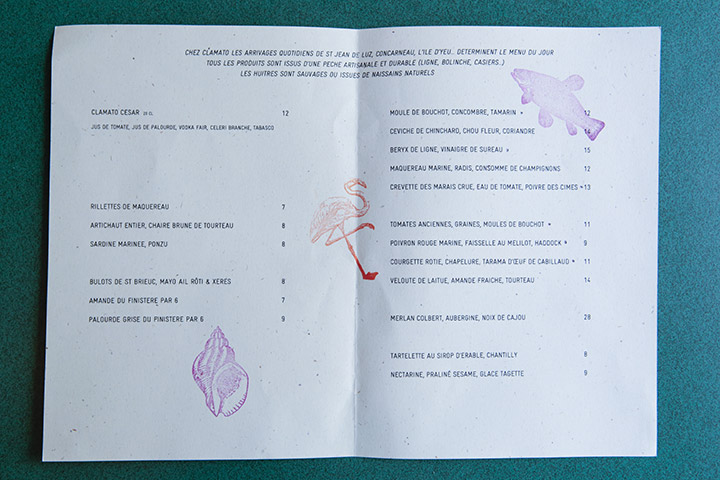 CHEZ CLAMATO LES ARRIVAGES QUOTIDIENS DE ST JEAN DE LUZ, CONCARNEAU, L'ILE D'YEU... DETERMINENT LE MENU DU JOUR
TOUS LES PRODUITS SONT ISSUS D'UNE PECHE ARTISANALE ET DURABLE (LIGNE, BOLINCHE, CASIERS..)
LES HUITRES SONT SAUVAGES OU ISSUES DE NAISSAINS NATURELS
CLAMATO CESAR 12
JUS DE TOMATE, JUS DE PALOURDE, VODKA FAIR, CELERI BRANCHE, TABASCO
RILLETTES DE MAQUEREAU 7
ARTICHAUT ENTIER, CHAIRE BRUNE DE TOURTEAU 8
SARDINE MARINEE, PONZU 8
BULOTS DE ST BRIEUC, MAYO AIL RÔTI & XERES 8
AMANDE DU FINISTERE PAR 6 7
PALOURDE GRISE DU FINISTERE PAR 6 9
MOULE DE BOUCHOT, CONCOMBRE, TAMARIN * 12
CEVICHE DE CHINCHARD, CHOU FLEUR, CORIANDRE
BERYX DE LIGNE, VINAIGRE DE SUREAU * 15
MAQUEREAU MARINE, RADIS, CONSOMME DE CHAMPIGNONS 12
CREVETTE DES MARAIS CRUE, EAU DE TOMATE, POIVRE DES CIMES * 13
TOMATES ANCIENNES, GRAINES, MOULES DE BOUCHOT * 11
POIVRON ROUGE MARINE, FAISSELLE AU MELILOT, HADDOCK * 9
COURGETTE ROTIE, CHAPELURE, TARAMA D'ŒUF DE CABILLAUD * 11
VELOUTE DE LAITUE, AMANDE FRAICHE, TOURTEAU 14
MERLAN COLBERT, AUBERGINE, NOIX DE CAJOU 28
TARTELETTE AU SIROP D'ERABLE, CHANTILLY 8
NECTARINE, PRALINÉ SESAME, GLACE TAGETTE 9